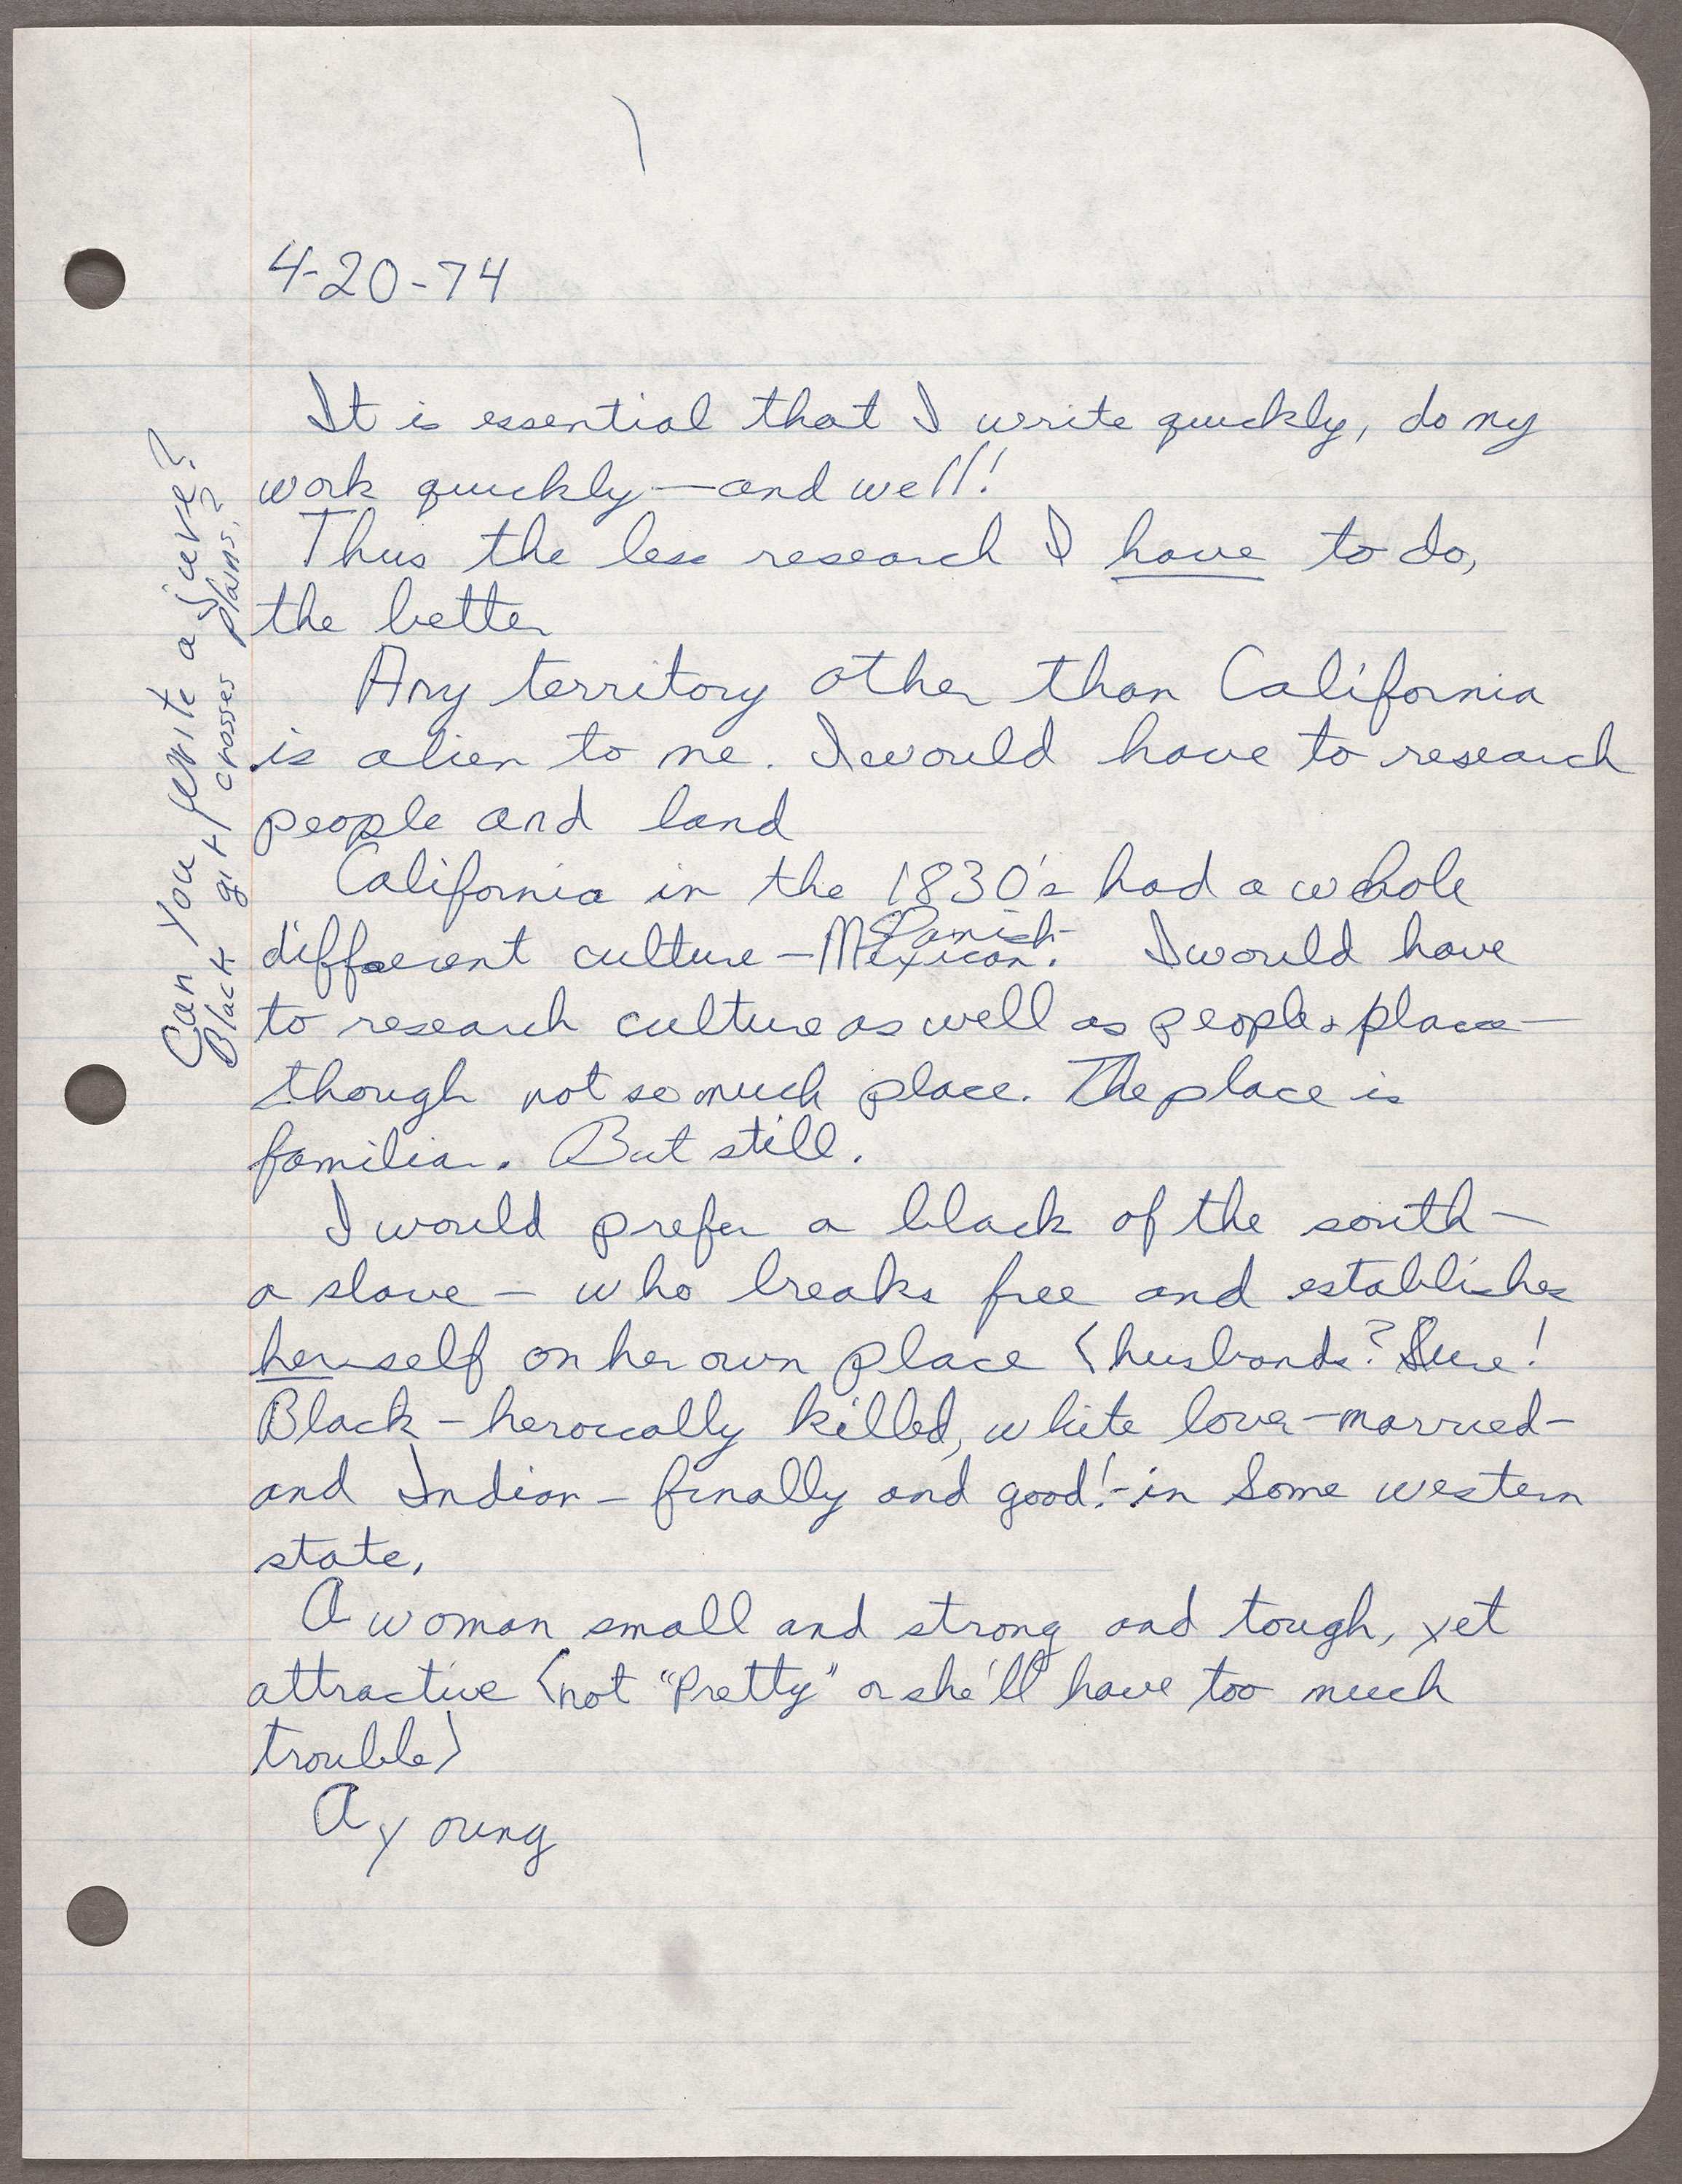 4-20-74
It is essential that I write quickly, do my
work quickly—and well!
Thus the less research I have to do,
the better
Any territory other than California
is alien to me. I would have to research
people and land
California in the 1830's had a whole
different culture – Spanish-
Mexican. I would have
to research culture as well as people & place—
though not so much place. The place is
familiar. But still.
I would prefer a black of the south –
a slave – who breaks free and establishes
herself on her own place (husbands? Sure!
Black – heroically killed, white lover – married –
and Indian – finally and good! – in some western
state,
A woman small and strong and tough, yet
attractive (not "Pretty" or she'll have too much
trouble)
A young
Can you write a juve?
Black girl crosses plains?